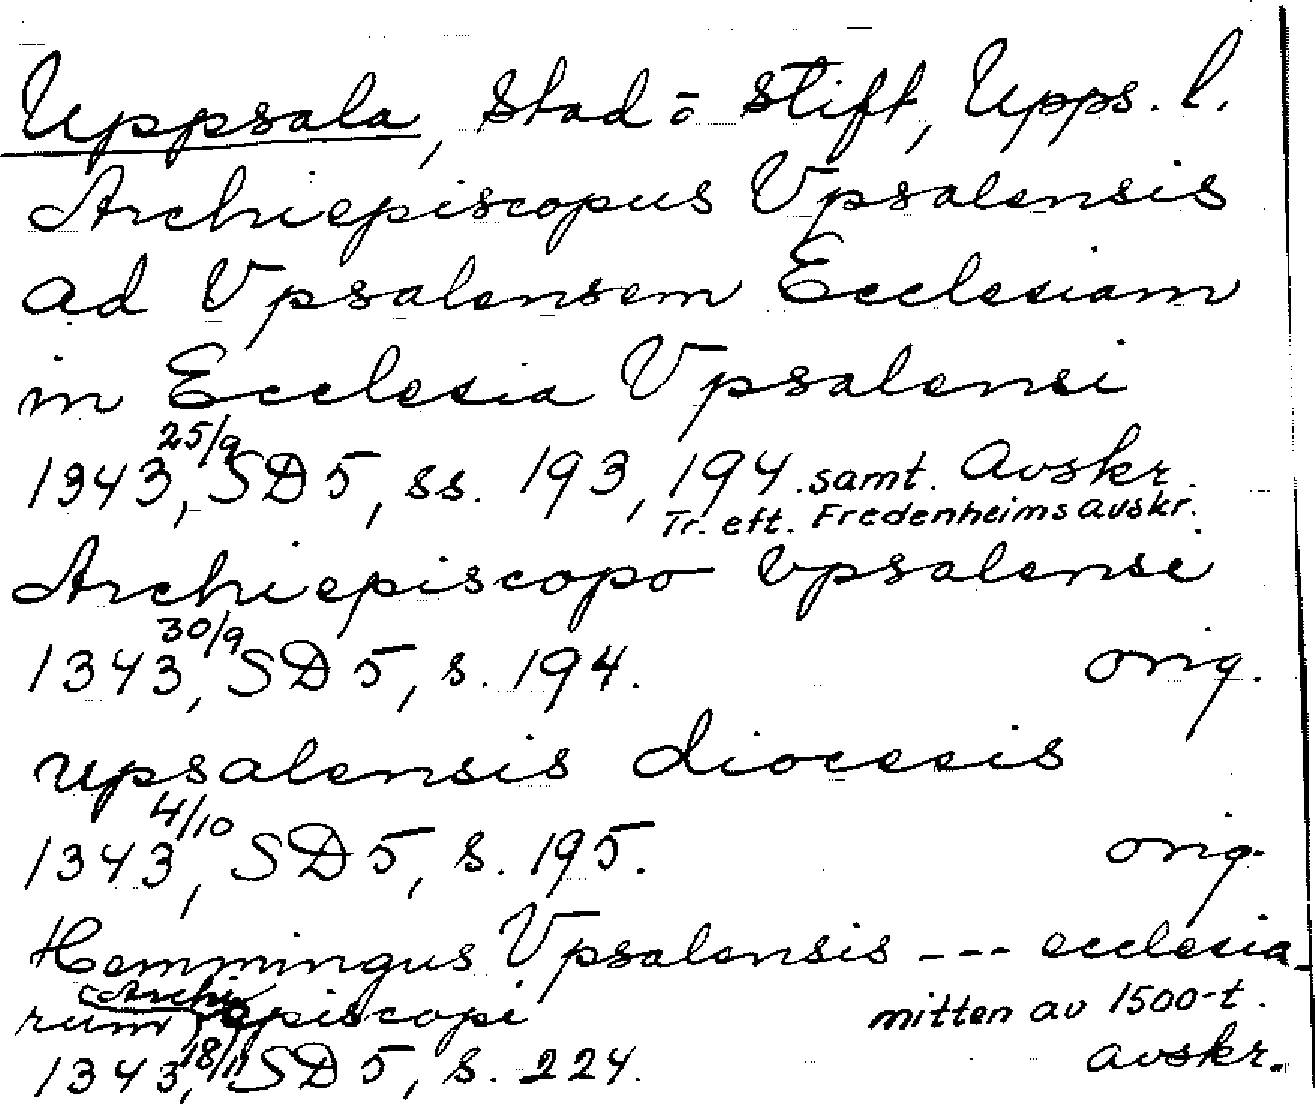 Uppsala, stad o stift, Upps. l.
Archiepiscopus Vpsalensis
ad Vpsalensem Ecclesiam
in Ecclesia Vpsalensi
1343, 25/9 SD 5, ss. 193, 194. samt. Avskr.
Tr. eft. Fredenheims avskr.
Archiepiscopo vpsalensi
1343, 30/9 SD 5, s. 194. orig.
upsalensis diocesis
1343, 4/10 SD 5, s. 195. orig.
Hemmingus Vpsalensis --- ecclesia-
rum Archiepiscopi mitten av 1500-t.
1343, 18/11 SD 5, s. 224. avskr.